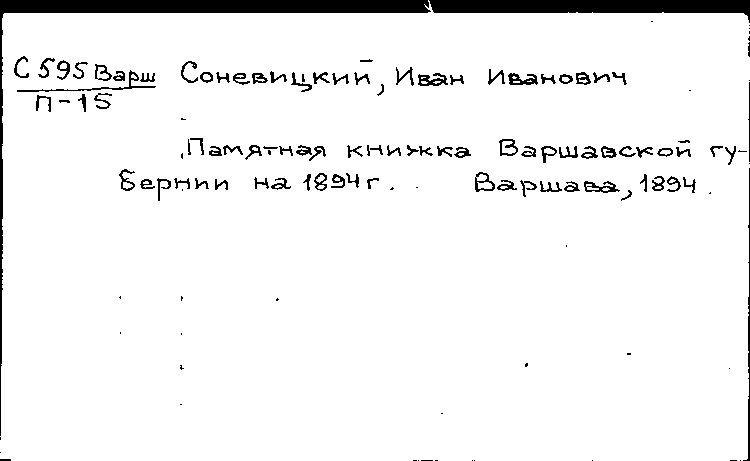 С 595 Варш Соневицкий, Иван Иванович
П-15
Памятная книжка Варшавской гу-
бернии на 1894 г. Варшава, 1894.